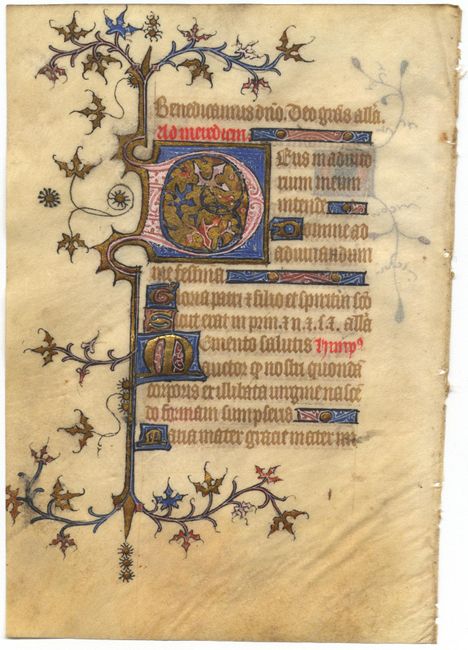 Benedicamus dño. Deo grãs allã.
Ad meediem.
Deus in adiuto
rium meum
intende
Domine ad
adiuuandum
me festina
Gloria patri & filio et spiritui sc̃o
Sicut erat in prin. & n. & s. allã
Memento salutis
auctor q̃ nostri quondã
corporis ex illibata uirgine nascẽ
do formam sumpseris
Maria mater gracie mater mi